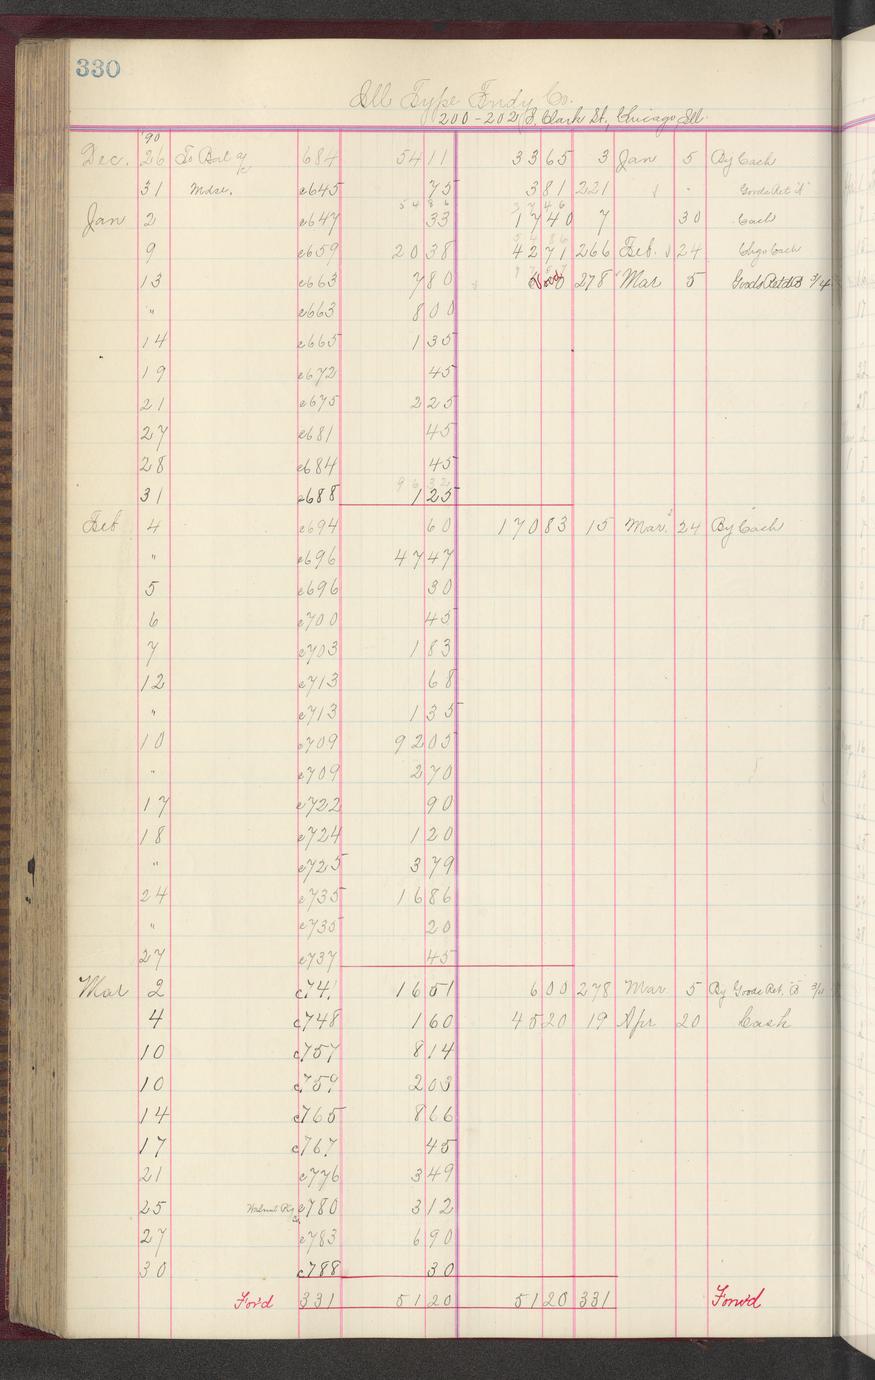 330
Ill Type Fndy Co.
200-202 S. Clark St., Chicago, Ill.
'90
Dec. 26 To Bal a/c 684 54 11 33 65 3 Jan 5 By Cash
31 Mdse. c645 75 3 81 221 " Goods Ret
54 86 37 46
Jan 2 c647 33 17 40 7 30 Cash
9 c659 20 38 42 71 266 Feb. 24 Chgo Cash
13 c663 7 80 278 Mar 5 Goods Retd 3/4
" c663 8 00
14 c665 1 35
19 c672 45
21 c675 2 25
27 c681 45
28 c684 45
96 32
31 c688 1 25
Feb 4 c694 60 170 83 15 Mar. 24 By Cash
" c696 47 47
5 c696 30
6 c700 45
7 c703 1 83
12 c713 68
" c713 1 35
10 c709 92 05
" c709 2 70
17 c722 90
18 c724 1 20
" c725 3 79
24 c735 16 86
" c735 20
27 c737 45
Mar 2 c741 16 51 6 00 278 Mar 5 By Goods Ret. B 3/4
4 c748 1 60 45 20 19 Apr 20 Cash
10 c757 8 14
10 c759 2 03
14 c765 8 66
17 c767 45
21 c776 3 49
25 Walnut c780 3 12
27 c783 6 90
30 c788 30
For'd 331 51 20 51 20 331 Forw'd